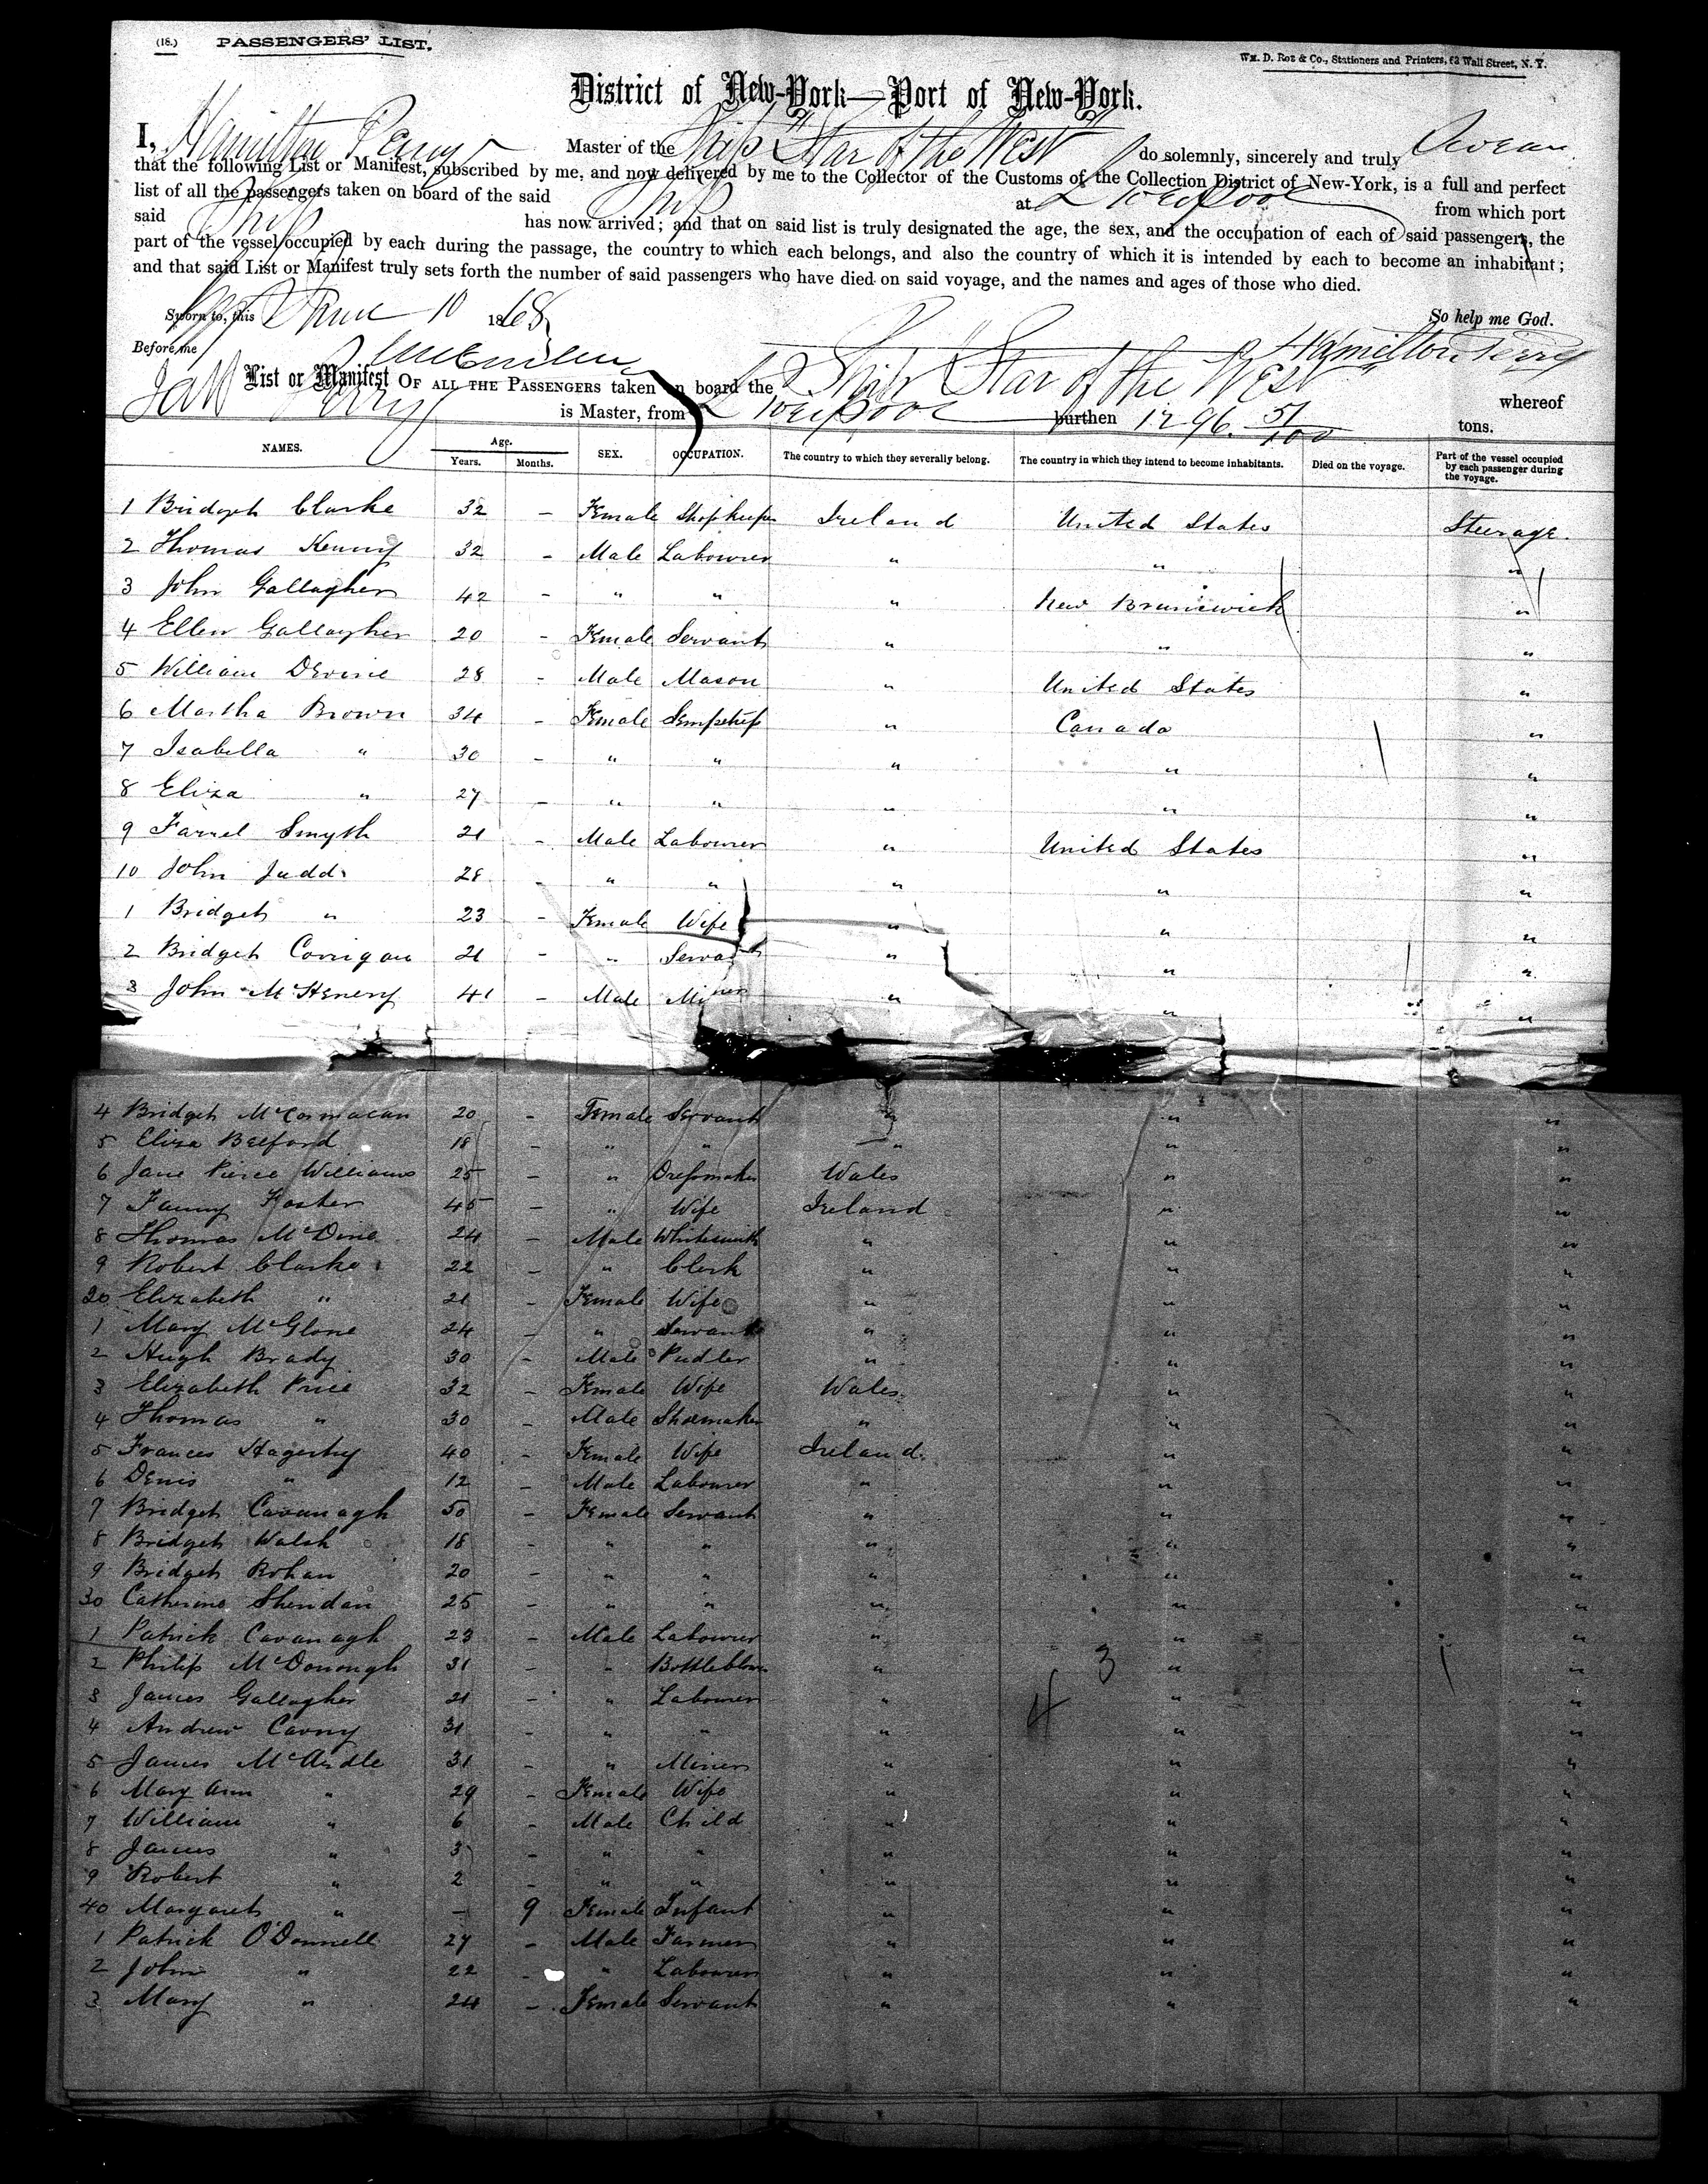 (18.) PASSENGERS' LIST.
Wm. D. Roe & Co., Stationers and Printers, 62 Wall Street, N. Y.
District of New-York—Port of New-York.
I, Hamilton Perry Master of the Ship "Star of the West" do solemnly, sincerely and truly Swear
that the following List or Manifest, subscribed by me, and now delivered by me to the Collector of the Customs of the Collection District of New-York, is a full and perfect
list of all the passengers taken on board of the said Ship at Liverpool from which port
said Ship has now arrived; and that on said list is truly designated the age, the sex, and the occupation of each of said passengers, the
part of the vessel occupied by each during the passage, the country to which each belongs, and also the country of which it is intended by each to become an inhabitant;
and that said List or Manifest truly sets forth the number of said passengers who have died on said voyage, and the names and ages of those who died.
Sworn to, this June 10 1868 So help me God.
Before me Hamilton Perry
List or Manifest OF ALL THE PASSENGERS taken on board the Ship Star of the West whereof
Perry is Master, from Liverpool burthen 1296. 51/100 tons.
NAMES. Age. Years. Months. SEX. OCCUPATION. The country to which they severally belong. The country in which they intend to become inhabitants. Died on the voyage. Part of the vessel occupied by each passenger during the voyage.
1 Bridget Clarke 32 - Female Shopkeeper Ireland United States Steerage.
2 Thomas Kenny 32 - Male Labourer " " "
3 John Gallagher 42 - " " " New Brunswick "
4 Ellen Gallagher 20 - Female Servant " " "
5 William Devine 28 - Male Mason " United States "
6 Martha Brown 34 - Female Sempstress " Canada "
7 Isabella " 30 - " " " " "
8 Eliza " 27 - " " " " "
9 Farrel Smyth 21 - Male Labourer " United States "
10 John Judd 28 - " " " " "
1 Bridget " 23 - Female Wife " " "
2 Bridget Corrigan 21 - " Servant " " "
3 John McHenery 41 - Male Miner " " "
4 Bridget McCormacan 20 - Female Servant " " "
5 Eliza Belford 18 - " " " " "
6 Jane Pierce Williams 25 - " Dressmaker Wales " "
7 Fanny Foster 45 - " Wife Ireland " "
8 Thomas McDine 24 - Male Whitesmith " " "
9 Robert Clarke 22 - " Clerk " " "
20 Elizabeth " 21 - Female Wife " " "
1 Mary McGlone 24 - " Servant " " "
2 Hugh Brady 30 - Male Pudler " " "
3 Elizabeth Price 32 - Female Wife Wales " "
4 Thomas " 30 - Male Shoemaker " " "
5 Frances Hagerty 40 - Female Wife Ireland " "
6 Denis " 12 - Male Labourer " " "
7 Bridget Cavanagh 50 - Female Servant " " "
8 Bridget Walsh 18 - " " " " "
9 Bridget Rohan 20 - " " " " "
30 Catherine Sheridan 25 - " " " " "
1 Patrick Cavanagh 23 - Male Labourer " " "
2 Philip McDonough 31 - " Bottleblower " " "
3 James Gallagher 21 - " Labourer " " "
4 Andrew Carny 31 - " " " " "
5 James McArdle 31 - " Miner " " "
6 Mary Ann " 29 - Female Wife " " "
7 William " 6 - Male Child " " "
8 James " 3 - " " " " "
9 Robert " 2 - " " " " "
40 Margaret " - 9 Female Infant " " "
1 Patrick O'Donnell 27 - Male Farmer " " "
2 John " 22 - " Labourer " " "
3 Mary " 24 - Female Servant " " "